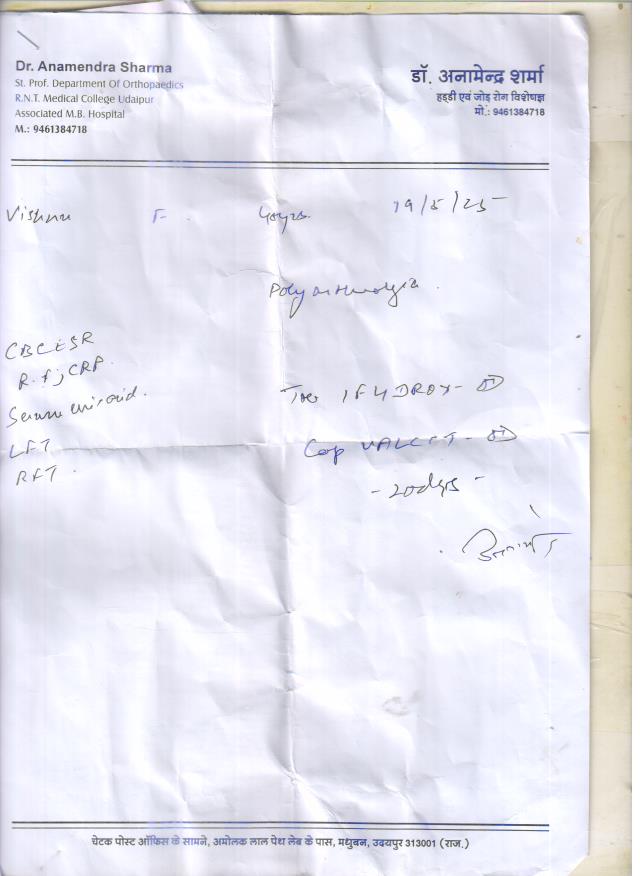 Dr. Anamendra Sharma
St. Prof. Department Of Orthopaedics
R.N.T. Medical College Udaipur
Associated M.B. Hospital
M.: 9461384718
डॉ. अनामेन्द्र शर्मा
हड्डी एवं जोड़ रोग विशेषज्ञ
मो.: 9461384718
Vishnu F. 19/5/25
Polyarthralgia.
CBC ESR
R.f, CRP.
Serum uric acid.
LFT
RFT.
OD
Cap OD
- 20 days -
चेटक पोस्ट ऑफिस के सामने, अमोलक लाल पेथ लेब के पास, मधुबन, उदयपुर 313001 (राज.)